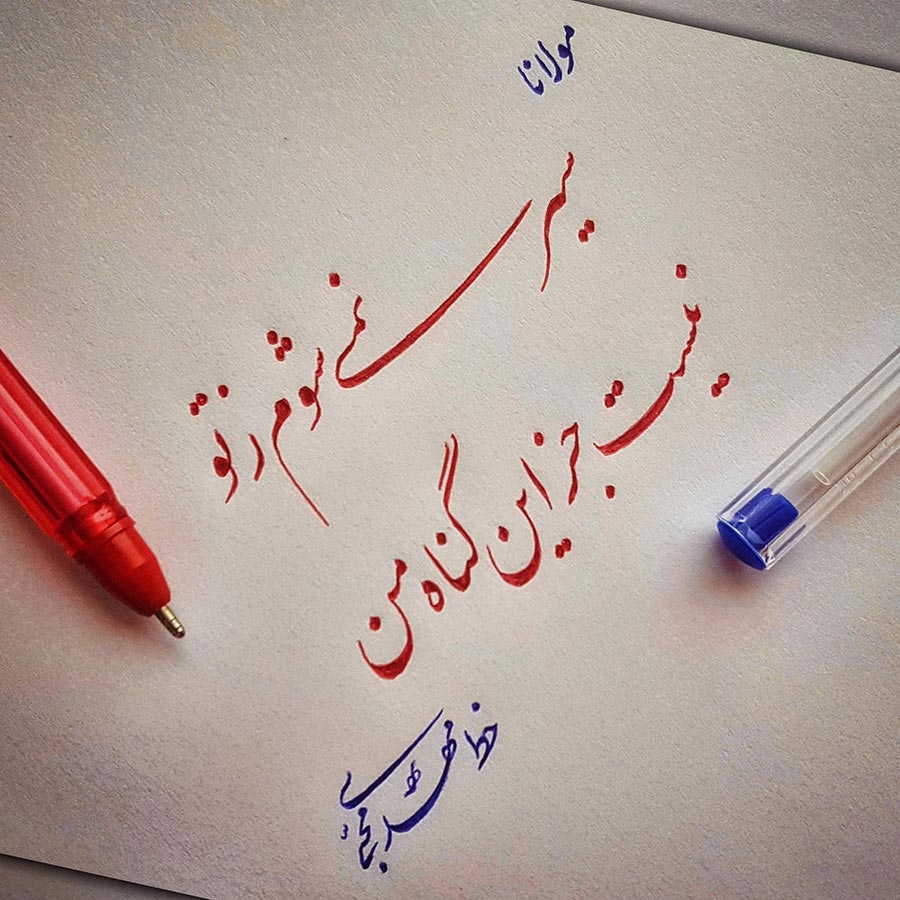 مولانا
سیر نمی شوم ز تو
نیست جز این گناه من
خط مهدی